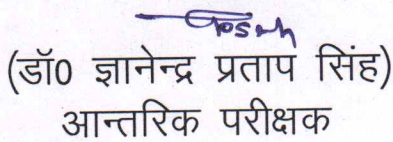 (डॉ0 ज्ञानेन्द्र प्रताप सिंह)
आन्तरिक परीक्षक